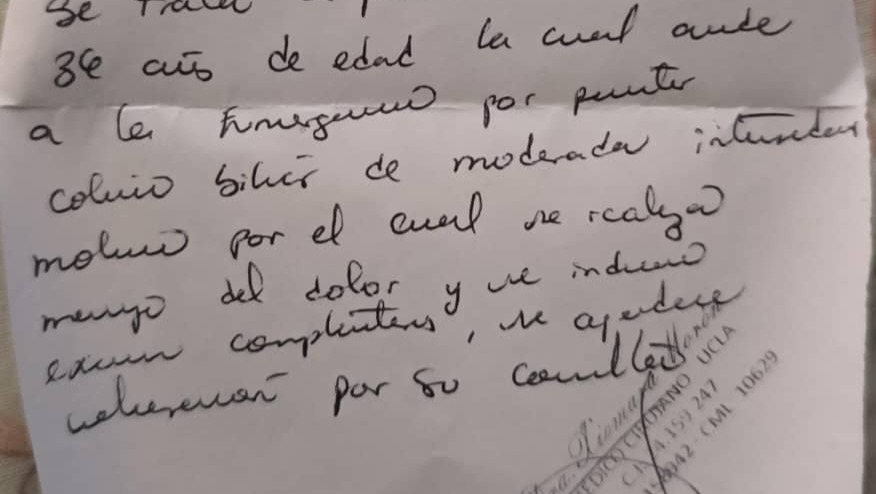 Se trata
36 años de edad la cual acude
a la Emergencia por presentar
cólico biliar de moderada intensidad
motivo por el cual se realiza
manejo del dolor y se indican
examen complementarios, se agradece
valoración por su consulta
MEDICO CIRUJANO UCLA
C.I. 4.159 247
42 - CML 10629